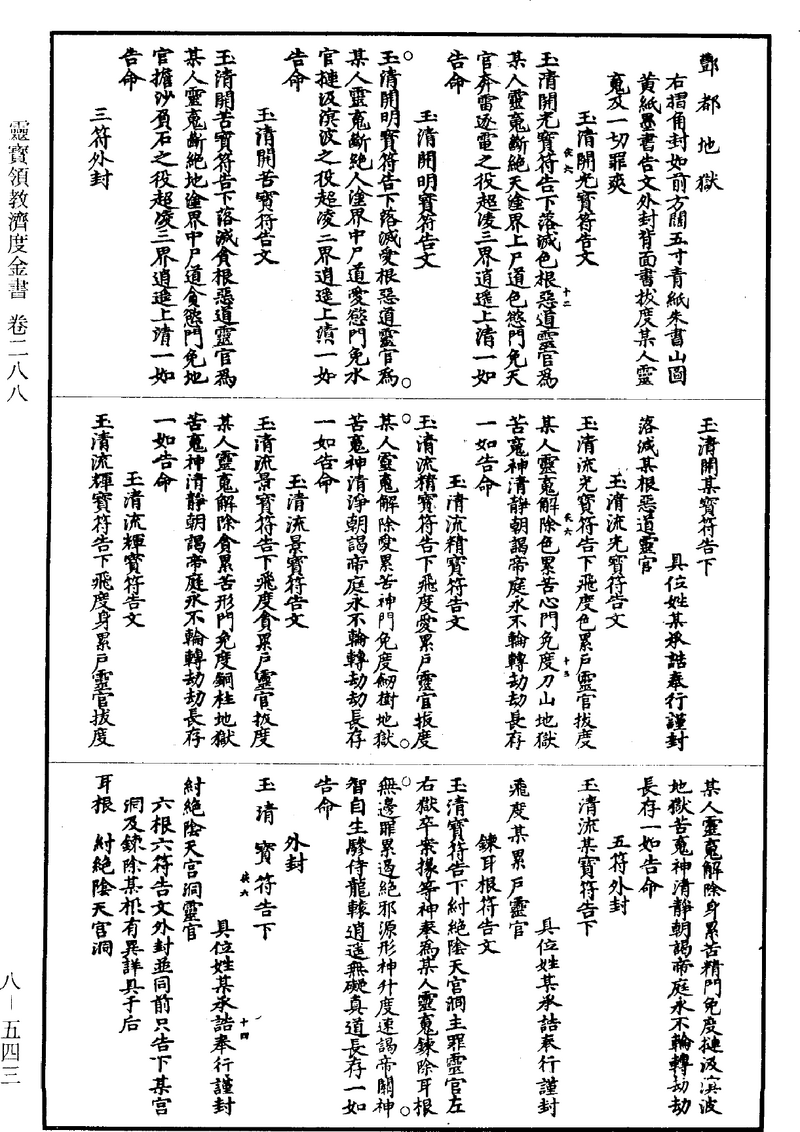 酆都地獄
右摺角封如前方闊五寸青紙朱書山圖
黃紙墨書告文外封背面書拔度某人靈
䰟及一切罪爽
玉清開光寶符告文
玉清開光寶符告下落滅色根惡道靈官爲
某人靈䰟斷絕天塗界上尸道色慾門免天
官奔雷逐電之役超凌三界逍遥上清一如
告命
玉清開明寶符告文
玉清開明寶符告下落滅愛根惡道靈官爲
某人靈䰟斷絕人塗界中尸道愛慾門免水
官摙汲溟波之役超凌二界逍遥上清一如
告命
玉清開苦寶符告文
玉清開苦寶符告下落滅貪根惡道靈官爲
某人靈䰟斷絕地塗界中尸道貪慾門免地
官擔沙負石之役超凌三界逍遥上清一如
告命
三符外封
玉清開某寶符告下
具位姓某承誥奉行謹封
落滅某根惡道靈官
玉清流光寶符告文
玉清流光寶符告下飛度色累尸靈官拔度
某人靈䰟解除色累苦心門免度刀山地獄
苦䰟神清靜朝謁帝庭永不輪轉劫劫長存
一如告命
玉清流精寶符告文
玉清流精寶符告下飛度愛累尸靈官拔度
某人靈䰟解除愛累苦神門免度劒樹地獄
苦䰟神清淨朝謁帝庭永不輪轉劫劫長存
一如告命
玉清流景寶符告文
玉清流景寶符告下飛度貪累尸靈官拔度
某人靈䰟解除貪累苦形門免度銅柱地獄
苦䰟神清靜朝謁帝庭永不輪轉劫劫長存
一如告命
玉清流輝寶符告文
玉清流輝寶符告下飛度身累尸靈官拔度
某人靈䰟解除身累苦精門免度摙汲溟波
地獄苦䰟神清靜朝謁帝庭永不輪轉劫劫
長存一如告命
五符外封
玉清流某寶符告下
具位姓某承誥奉行謹封
飛度某累尸靈官
鍊耳根符告文
玉清寶符告下紂絕陰天宮洞主罪靈官左
右獄卒案掾等神奉爲某人靈䰟鍊除耳根
無邊罪累過絕邪源形神升度速謁帝闕神
智自生驂侍龍轅逍遥無礙真道長存一如
告命
外封
玉清寶符告下
具位姓某承誥奉行謹封
紂絕陰天宮洞靈官
六根六符告文外封並同前只告下某宮
洞及鍊除某根有異詳具于后
耳根 紂絕陰天宮洞
靈寶領教濟度金書 卷二八八
八—五四三